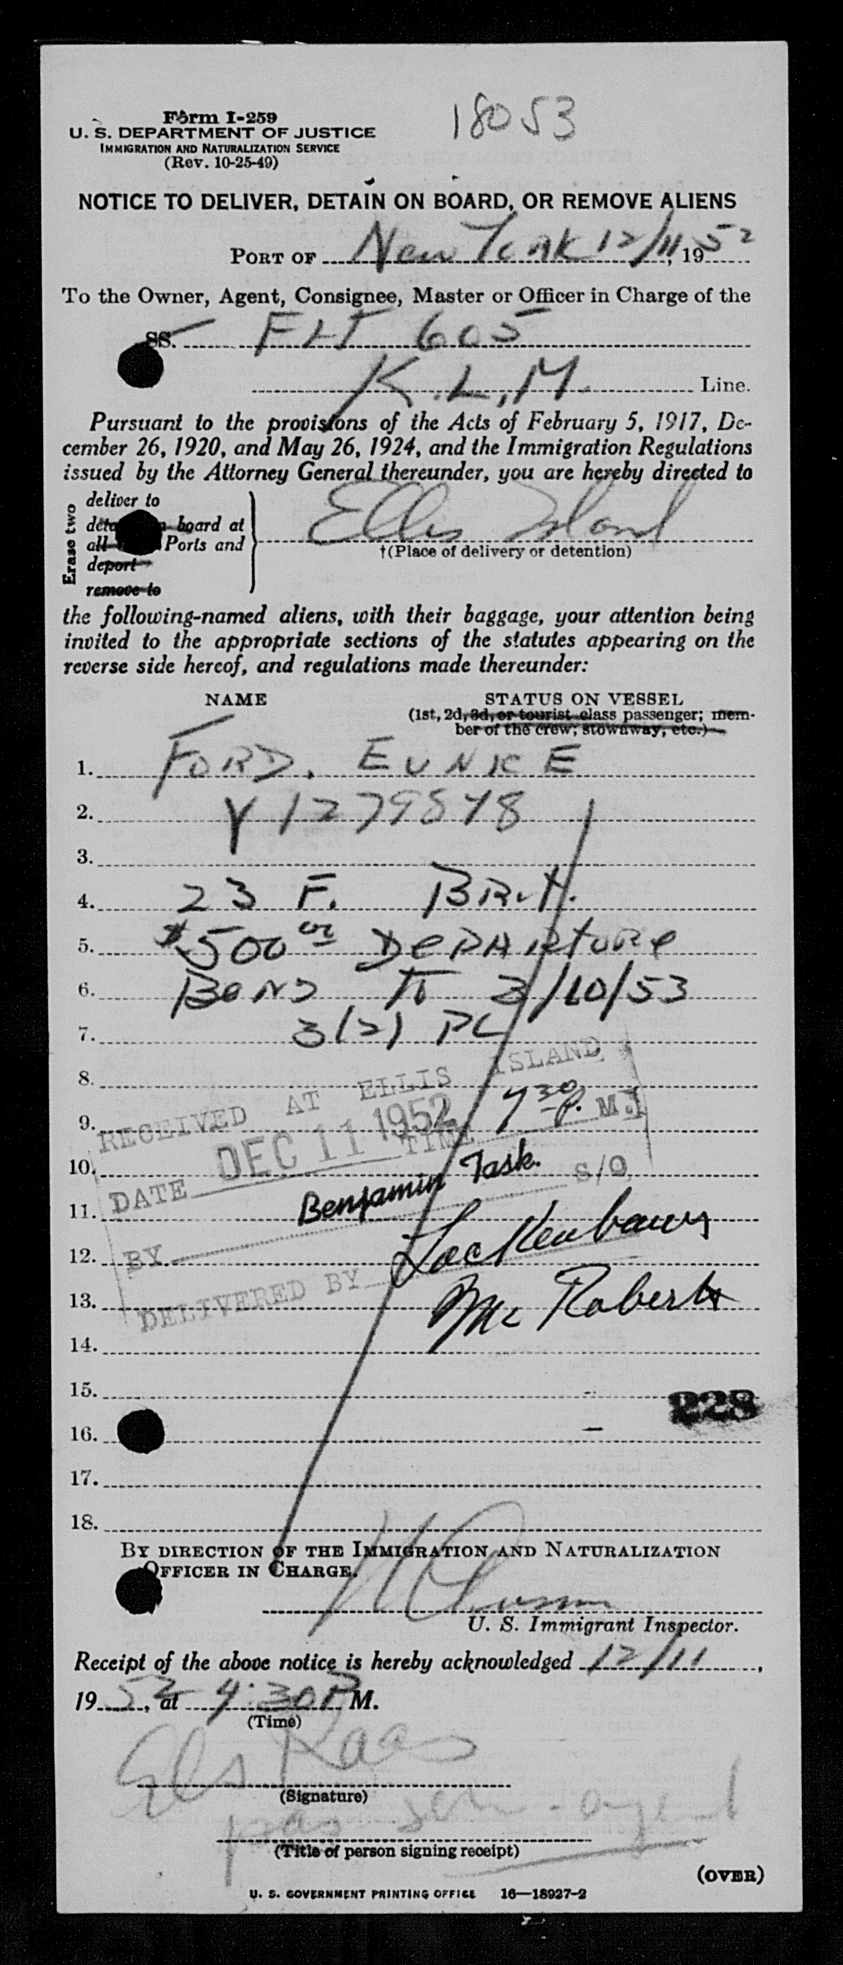 18053
Form I-259
U. S. DEPARTMENT OF JUSTICE
IMMIGRATION AND NATURALIZATION SERVICE
(Rev. 10-25-49)
NOTICE TO DELIVER, DETAIN ON BOARD, OR REMOVE ALIENS
PORT OF New York 12/11, 1952
To the Owner, Agent, Consignee, Master or Officer in Charge of the
SS. FLT 605
K.L.M. Line.
Pursuant to the provisions of the Acts of February 5, 1917, De-
cember 26, 1920, and May 26, 1924, and the Immigration Regulations
issued by the Attorney General thereunder, you are hereby directed to
Erase two
deliver to
board at
all Ports and
deport
remove to
Ellis Island
†(Place of delivery or detention)
the following-named aliens, with their baggage, your attention being
invited to the appropriate sections of the statutes appearing on the
reverse side hereof, and regulations made thereunder:
NAME STATUS ON VESSEL
(1st, 2d, 3d, or tourist class passenger; mem-
ber of the crew; stowaway, etc.)
1. FORD, EUNICE
2. V 1279878
3.
4. 23 F. Brit.
5. $500 00 DEPARTURE
6. BOND To 3/10/53
7. 3(2) PL
8.
9.
10.
11.
12.
13.
14.
15.
16.
17.
18.
RECEIVED AT ELLIS ISLAND
DATE DEC 11 1952 TIME 7 30 P. M
BY Benjamin Task. S/O
DELIVERED BY Lackenbauer
Mc Roberts
228
BY DIRECTION OF THE IMMIGRATION AND NATURALIZATION
OFFICER IN CHARGE.
U. S. Immigrant Inspector.
Receipt of the above notice is hereby acknowledged 12/11,
1952, at 4:30 P M.
(Time)
Els Kaas
(Signature)
pas agent
(Title of person signing receipt)
(OVER)
U. S. GOVERNMENT PRINTING OFFICE 16—18927-2